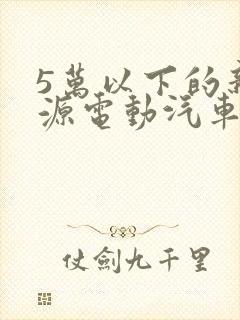 5萬以下的新
源電動汽車
仗劍九千里